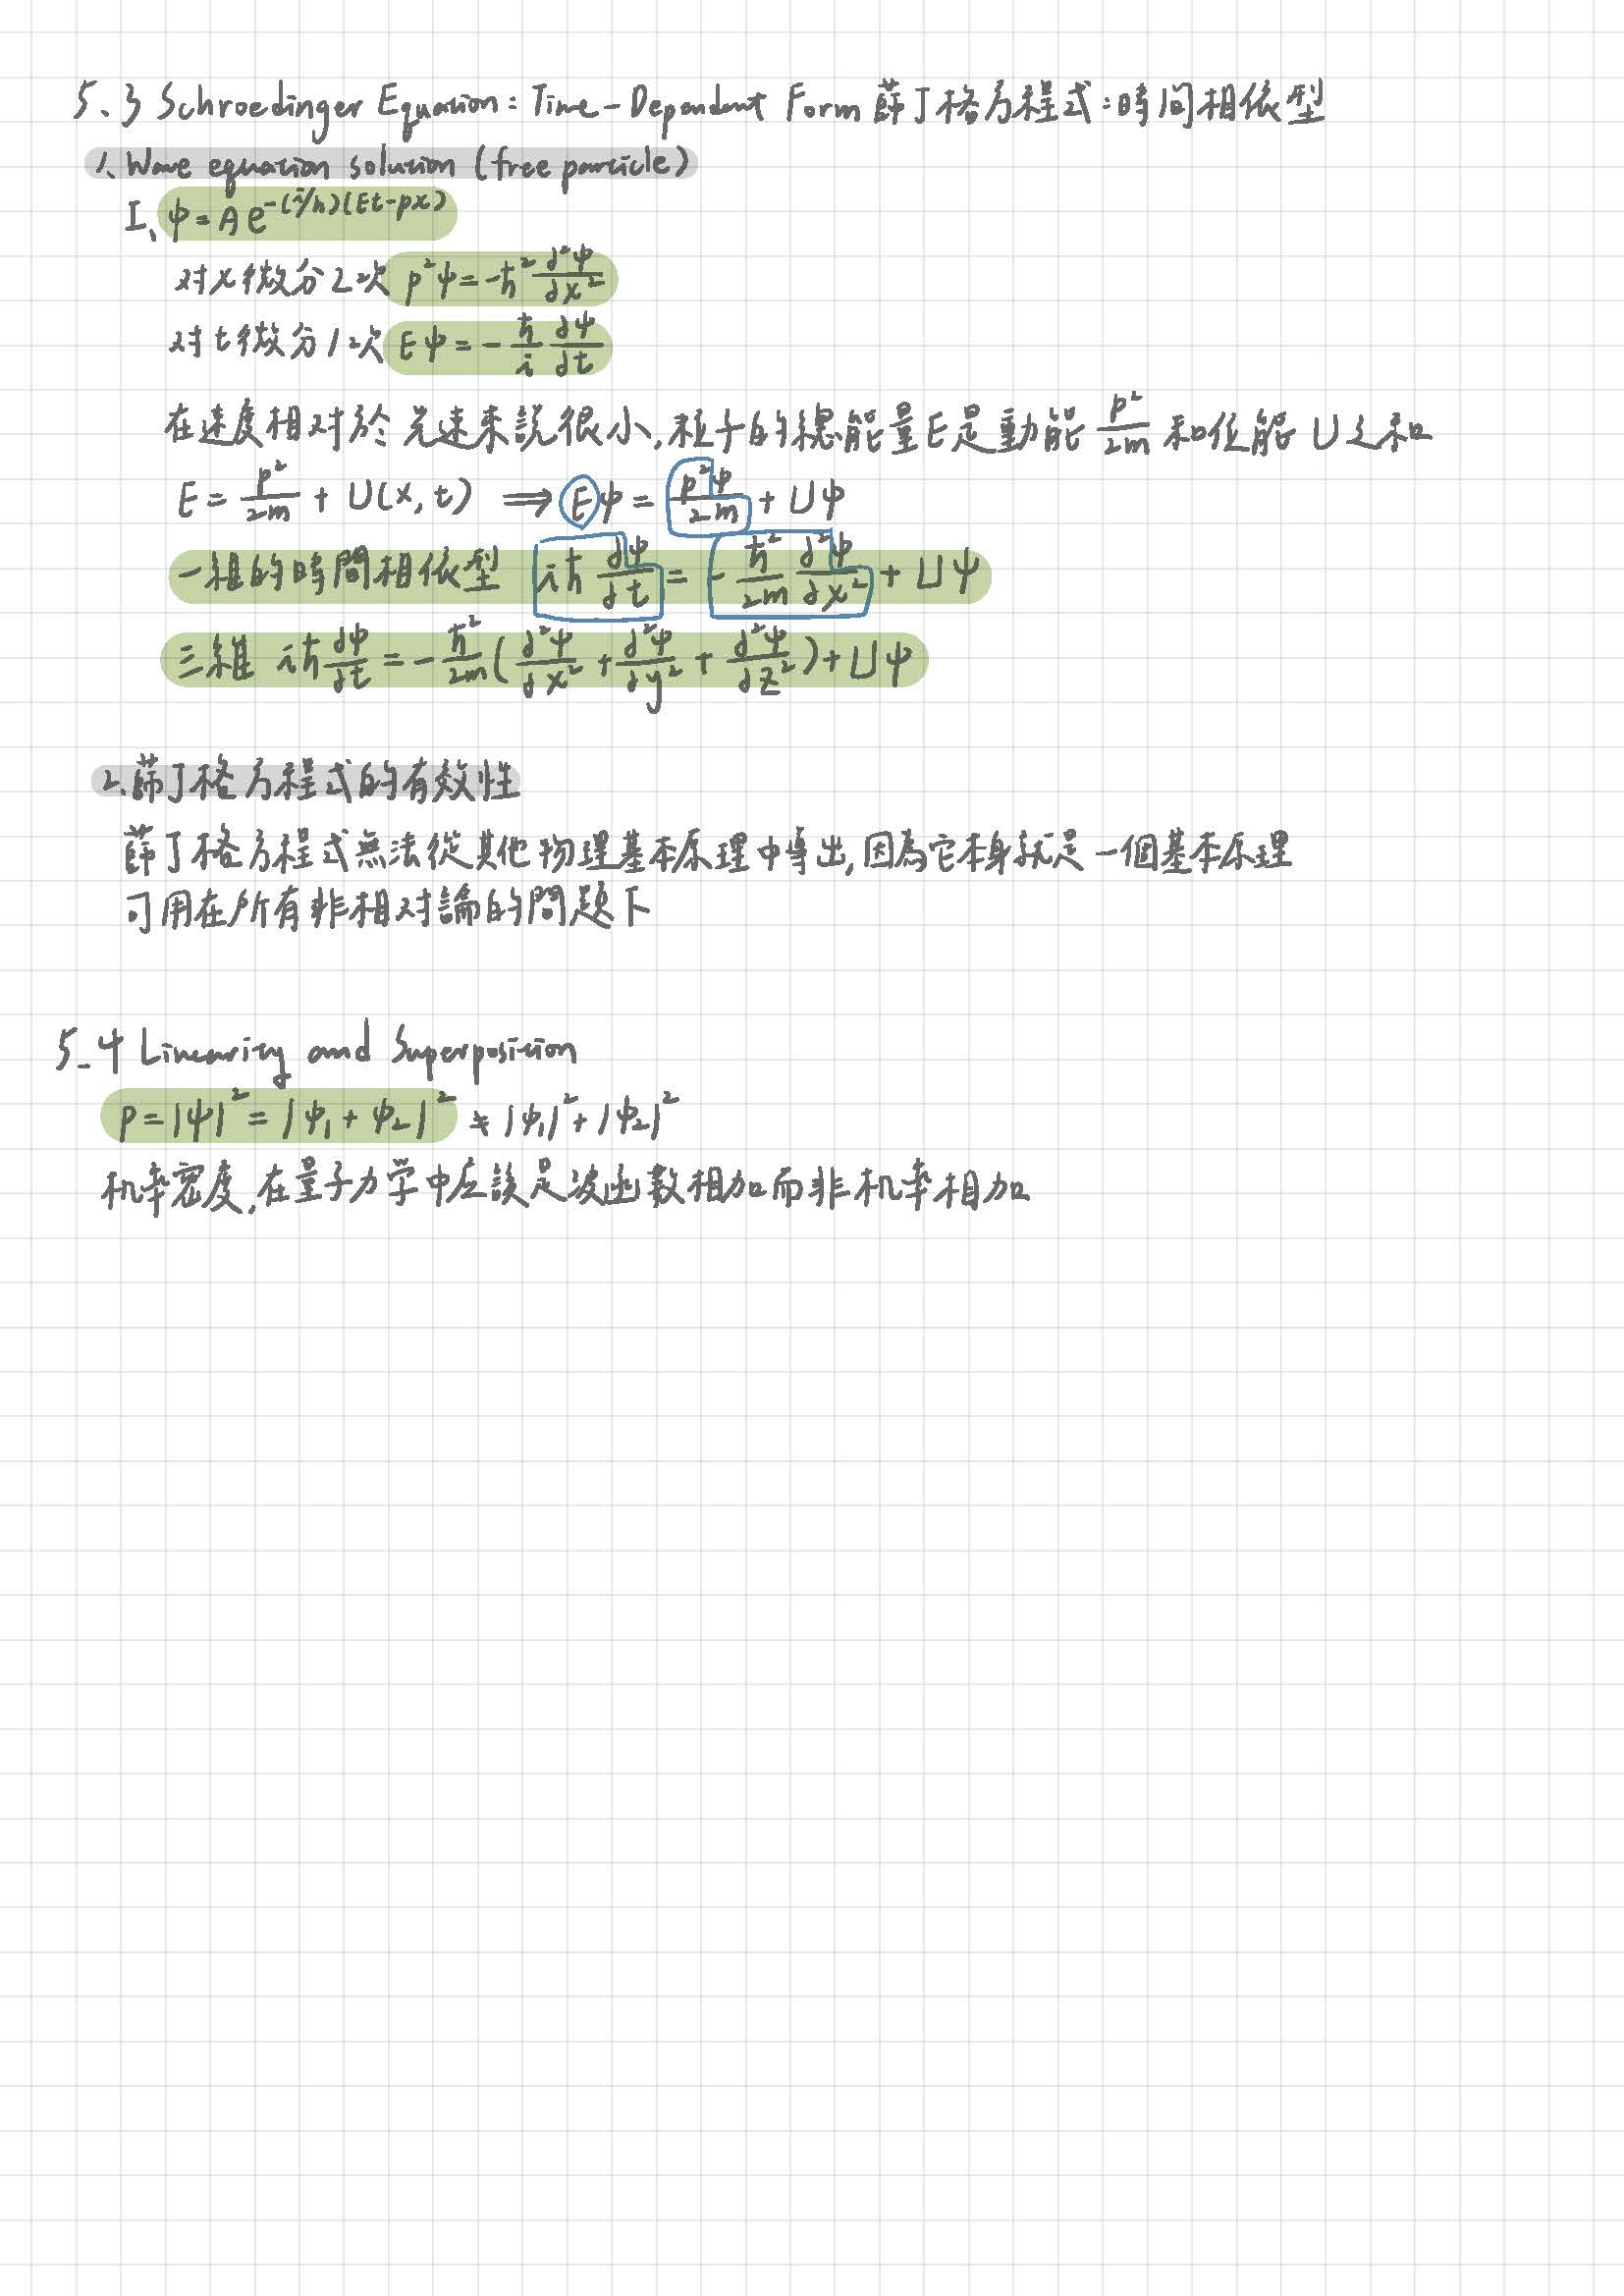 5、3 Schroedinger Equation : Time-Dependent Form 薛丁格方程式:時間相依型
1、Wave equation solution (free particle)
I、ψ=Ae^-(i/ħ)(Et-px)
对x微分2次 p²ψ=-ħ² ∂²ψ/∂x²
对t微分1次 Eψ=-ħ/i ∂ψ/∂t
在速度相对於光速來説很小,粒子的總能量E是動能 p²/2m 和位能 U之和
E = p²/2m + U(x,t) ⟹ Eψ = p²ψ/2m + Uψ
一維的時間相依型 iħ ∂ψ/∂t = -ħ²/2m ∂²ψ/∂x² + Uψ
三維 iħ ∂ψ/∂t = -ħ²/2m (∂²ψ/∂x² + ∂²ψ/∂y² + ∂²ψ/∂z²) + Uψ
2.薛丁格方程式的有效性
薛丁格方程式無法從其他物理基本原理中導出,因為它本身就是一個基本原理
可用在所有非相对論的問題下
5-4 Linearity and Superposition
P=|ψ|²=|ψ₁+ψ₂|² ≠ |ψ₁|²+|ψ₂|²
机率密度,在量子力学中应該是波函數相加而非机率相加